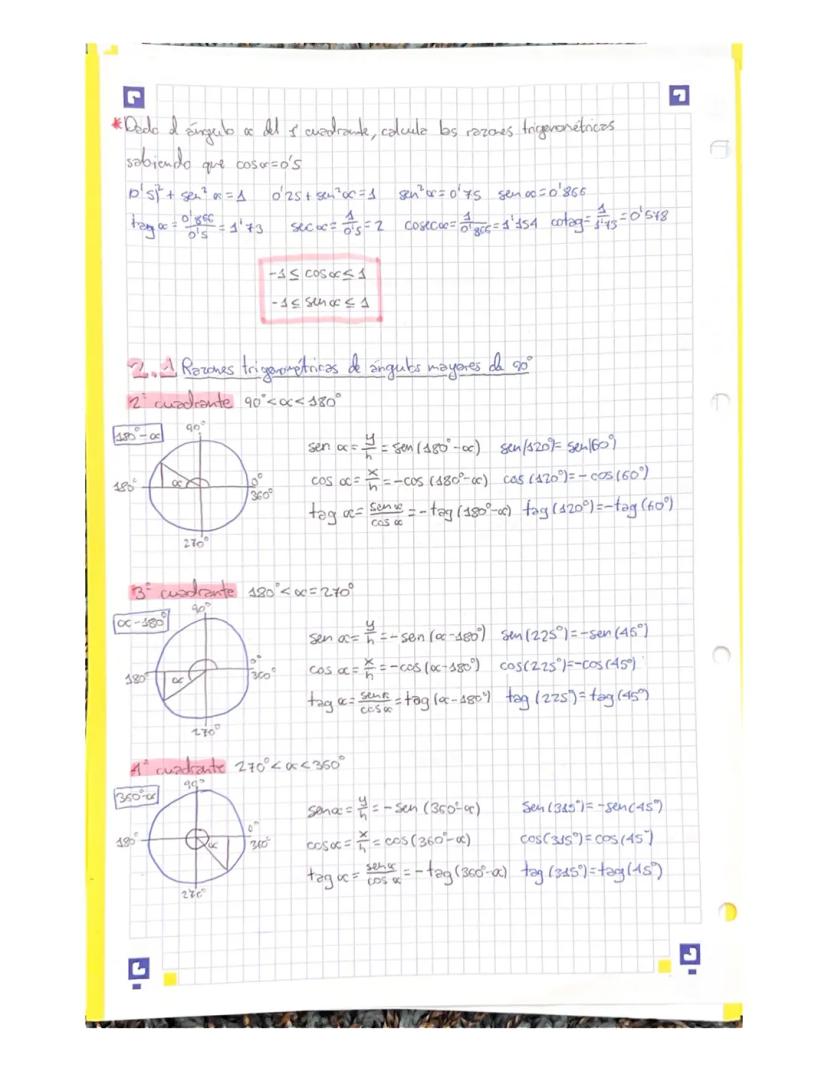 *Dado el ángulo α del 1º cuadrante, calcula las razones trigonométricas
sabiendo que cosα=0'5
(0'5)²+sen²α=1 0'25+sen²α=1 sen²α=0'75 senα=0'866
tagα=0'866/0'5=1'73 secα=1/0'5=2 cosecα=1/0'866=1'154 cotag=1/1'73=0'578
-1≤cosα≤1
-1≤senα≤1
2.1 Razones trigonométricas de ángulos mayores de 90°
2º cuadrante 90°<α<180°
180°-α
90°
sen α=y/h=sen(180°-α) sen(120°)=sen(60°)
180° α 0°
360°
cos α=x/h=-cos(180°-α) cos(120°)=-cos(60°)
tag α=sen α/cos α=-tag(180°-α) tag(120°)=-tag(60°)
270°
3º cuadrante 180°<α=270°
α-180°
90°
sen α=y/h=-sen(α-180°) sen(225°)=-sen(45°)
cos α=x/h=-cos(α-180°) cos(225°)=-cos(45°)
180° α 0°
360°
tag α=sen α/cos α=tag(α-180°) tag(225°)=tag(45°)
270°
4º cuadrante 270°<α<360°
360°-α
90°
sen α=y/h=-sen(360°-α) sen(315°)=-sen(45°)
180° α 0°
360°
cos α=x/h=cos(360°-α) cos(315°)=cos(45°)
tag α=sen α/cos α=-tag(360°-α) tag(315°)=tag(45°)
270°